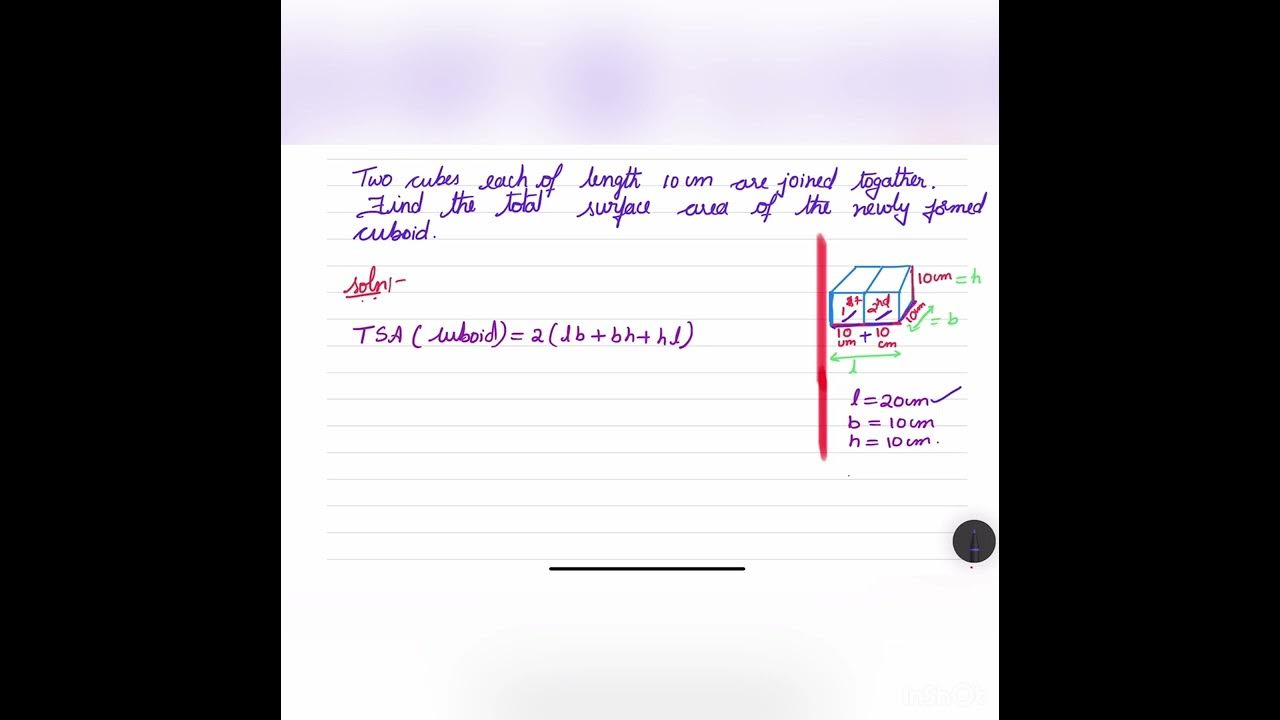 Two cubes each of length 10 cm are joined togather.
Find the total surface area of the newly formed
cuboid.
soln:-
TSA (cuboid) = 2(lb + bh + hl)
1st 2nd
10cm = h
10cm = b
10 cm + 10 cm
l
l = 20cm ✓
b = 10 cm
h = 10 cm.
InShot